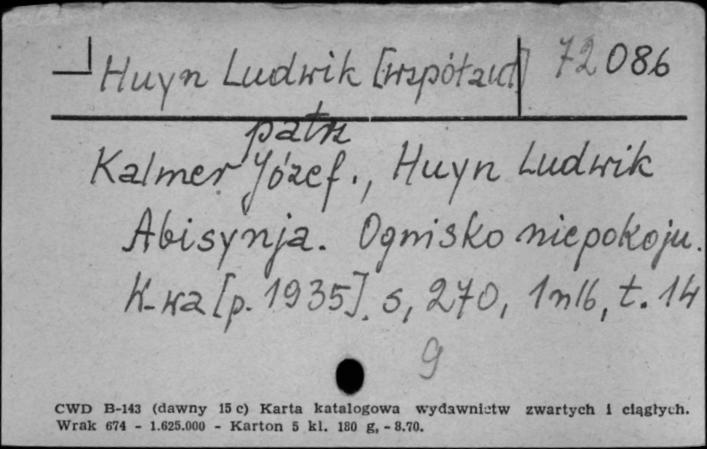 Huyn Ludwik [współaut] 72086
patrz
Kalmer Józef., Huyn Ludwik
Abisynja. Ognisko niepokoju.
K-wa [p. 1935]. s, 270, 1nlb, t. 14
9
CWD B-143 (dawny 15 c) Karta katalogowa wydawnictw zwartych i ciągłych.
Wrak 674 - 1.625.000 - Karton 5 kl. 180 g, - 8.70.